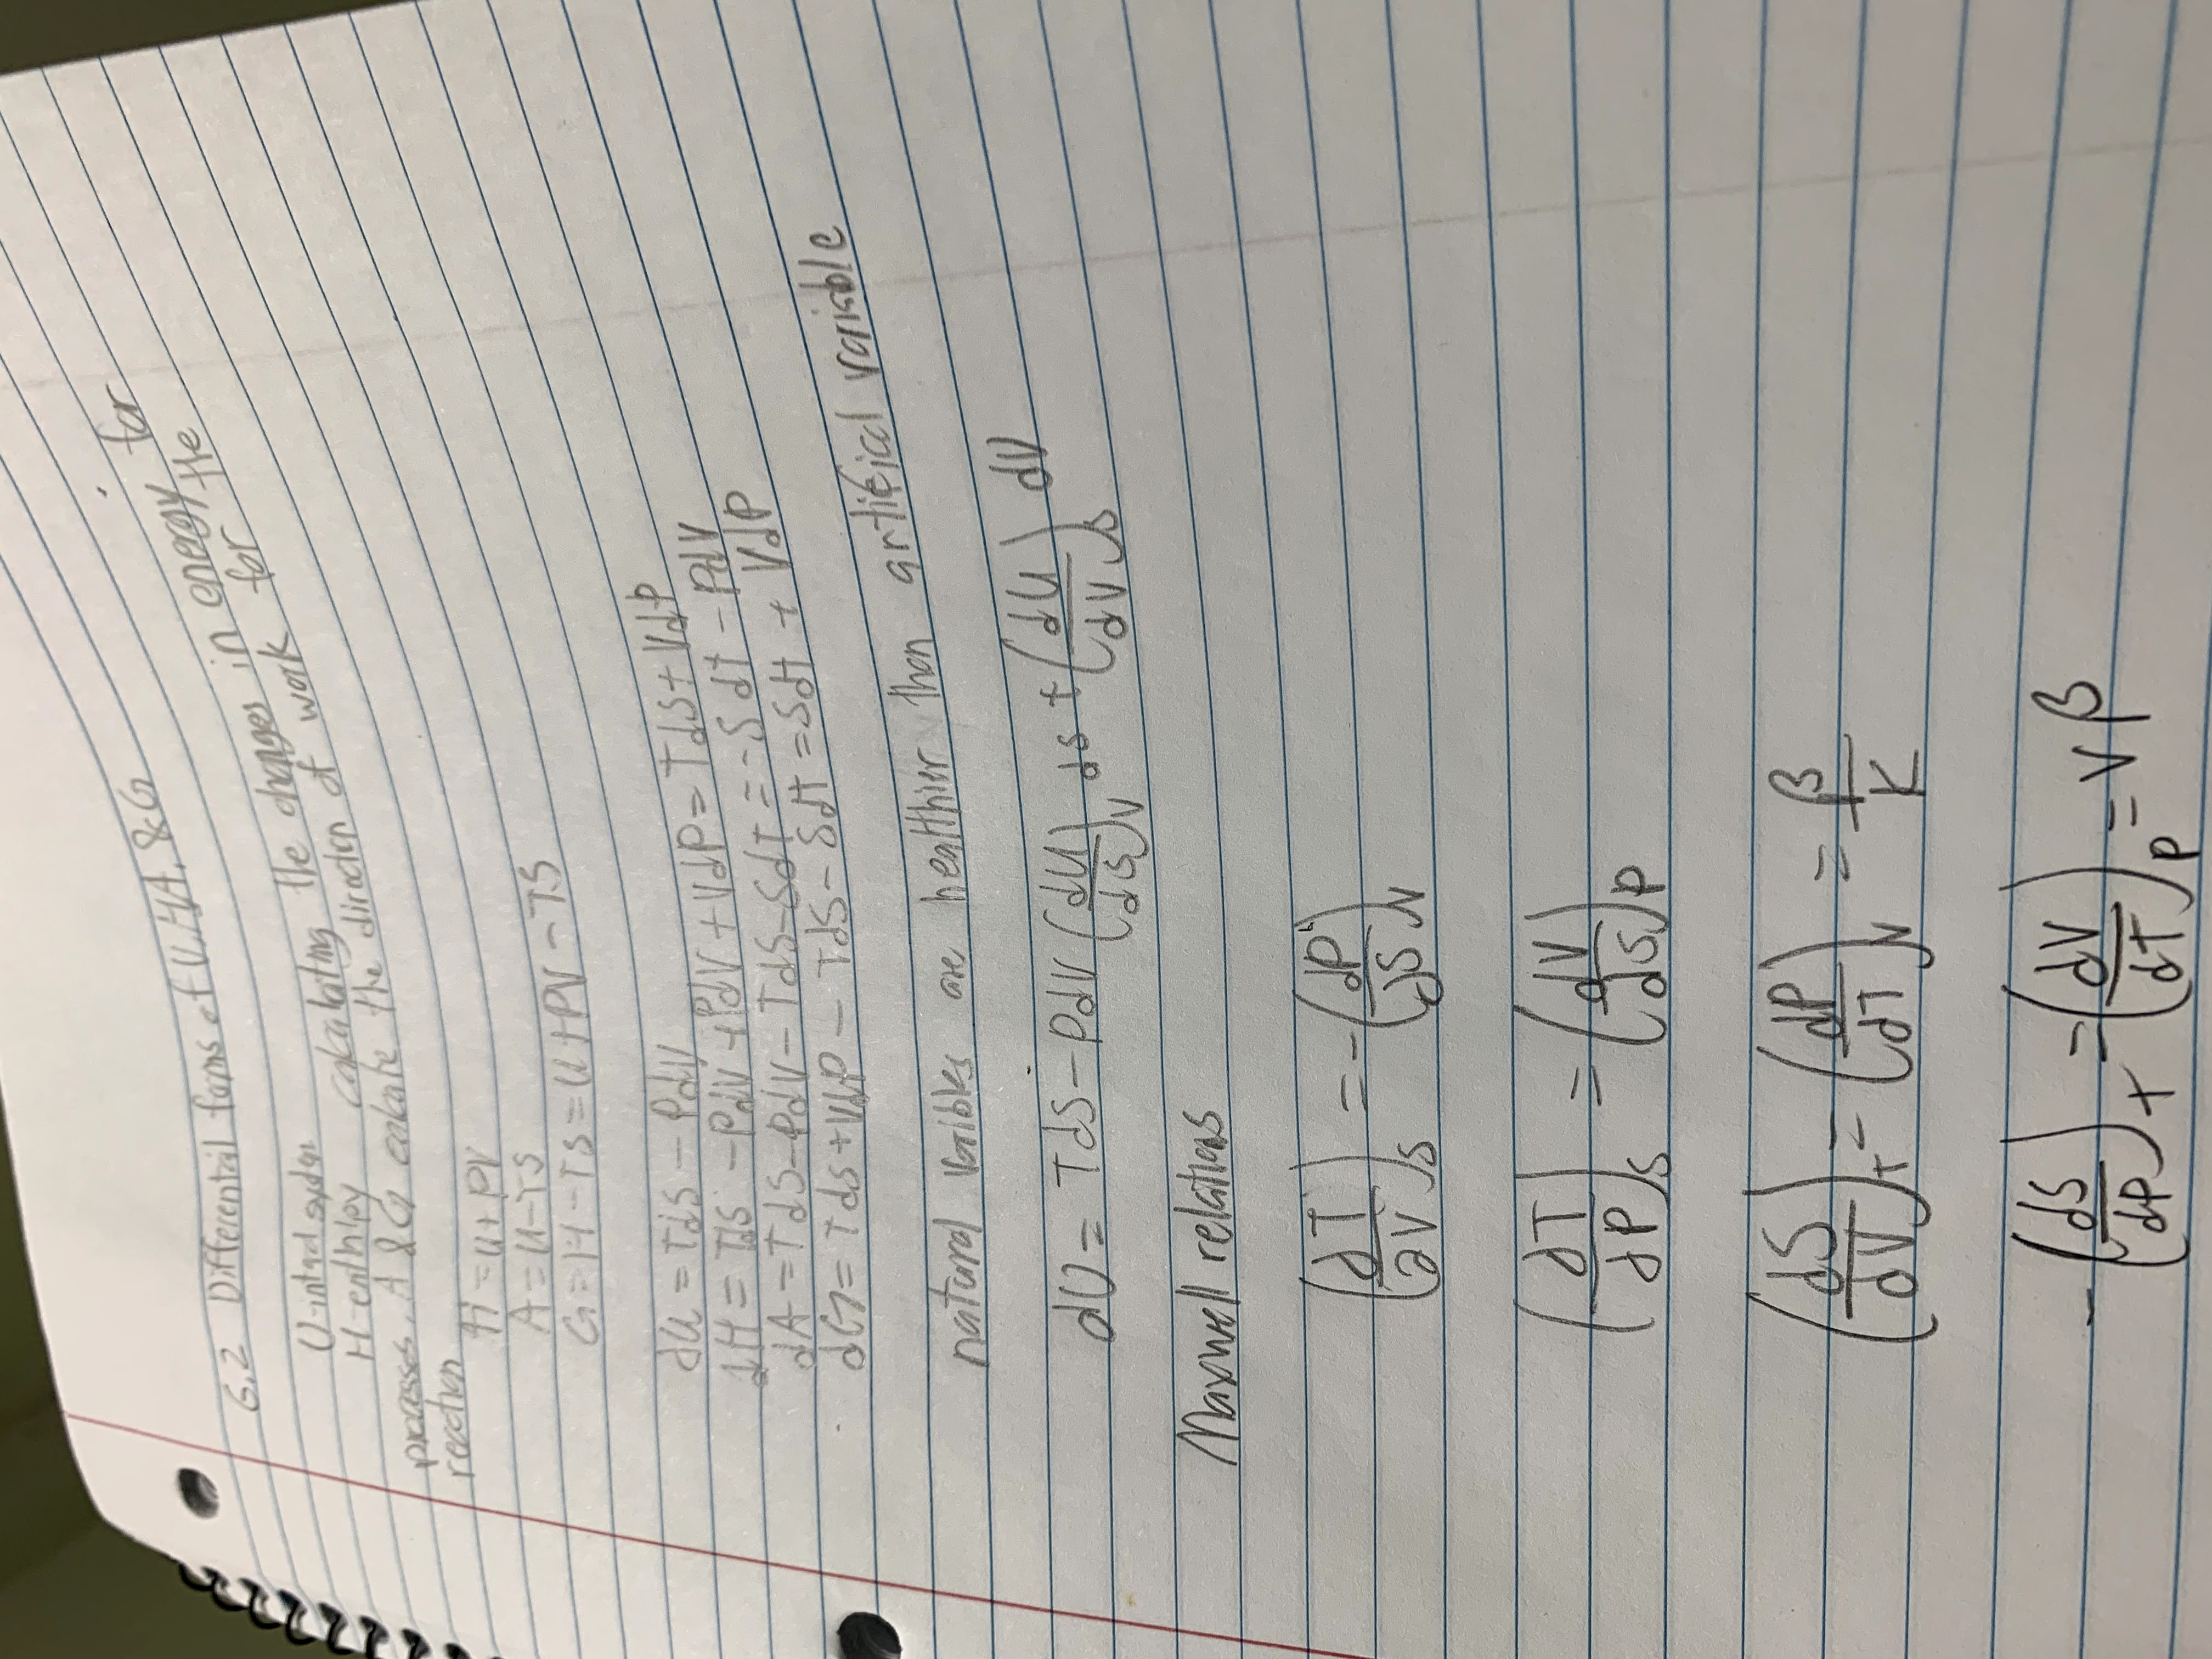 6.2 Differential forms of U, H, A, & G
U-interal system
H-enthlpy calculating the changes in energy for
processes. A & G calcate the direction of work for the
reaction
H = U + PV
A = U - TS
G = H - TS = U + PV - TS
dU = TdS - PdV
dH = TdS - PdV + PdV + VdP = TdS + VdP
dA = TdS - PdV - TdS - SdT = -SdT - PdV
dG = TdS + VdP - TdS - SdT = SdT + VdP
natural varibles are healthier than artificial varisble
dU = TdS - PdV (dU/dS)_V ds + (dU/dV)_S dV
Maxwell relations
(∂T/∂V)_S = -(dP/∂S)_V
(∂T/∂P)_S = (dV/dS)_P
(dS/dV)_T = (dP/dT)_V = β/K
-(dS/dP)_T = (dV/dT)_P = Vβ